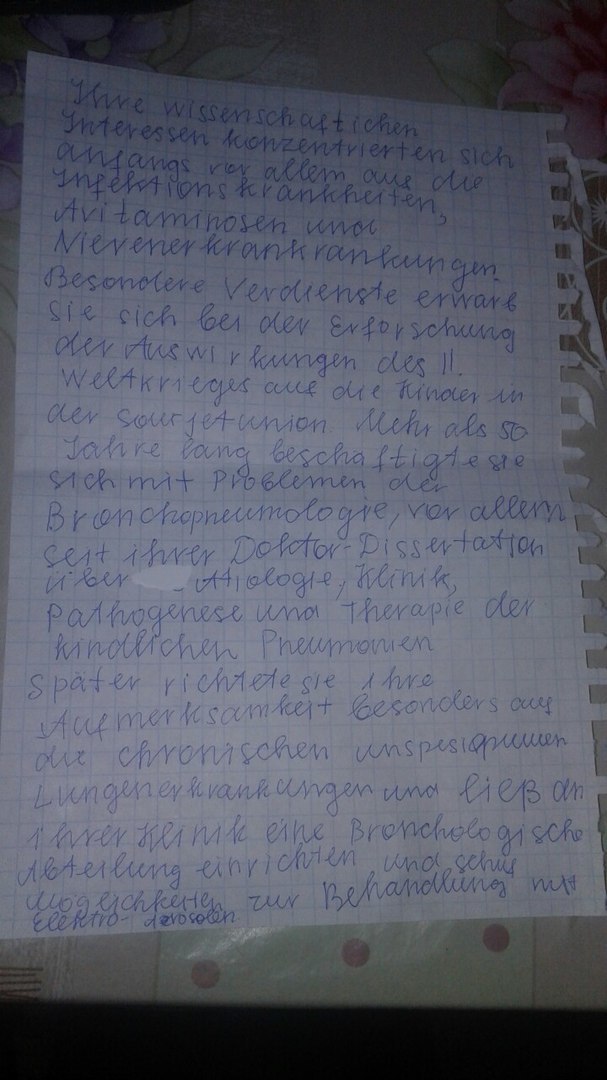 Ihre wissenschaftichen
Interessen konzentrierten sich
anfangs vor allem aus die
Infektionskrankheiten,
Avitaminosen und
Nierenerkrankrankungen.
Besondere Verdienste erwarb
sie sich bei der Erforschung
der Auswirkungen des II.
Weltkrieges auf die Kinder in
der Sowjetunion. Mehr als 50
Jahre lang beschaftigte sie
sich mit Problemen der
Bronchopneumologie, vor allem
seit ihrer Doktor-Dissertation
über Atiologie, Klinik,
Pathogenese und Therapie der
kindlichen Pneumonien
Später richtete sie ihre
Aufmerksamkeit besonders aus
die chronischen
Lungenerkrankungen und ließ an
ihrer Klinik eine Bronchologische
Abteilung einrichten und schuf
Möglichkeiten zur Behandlung mit
Elektro-Aerosolen